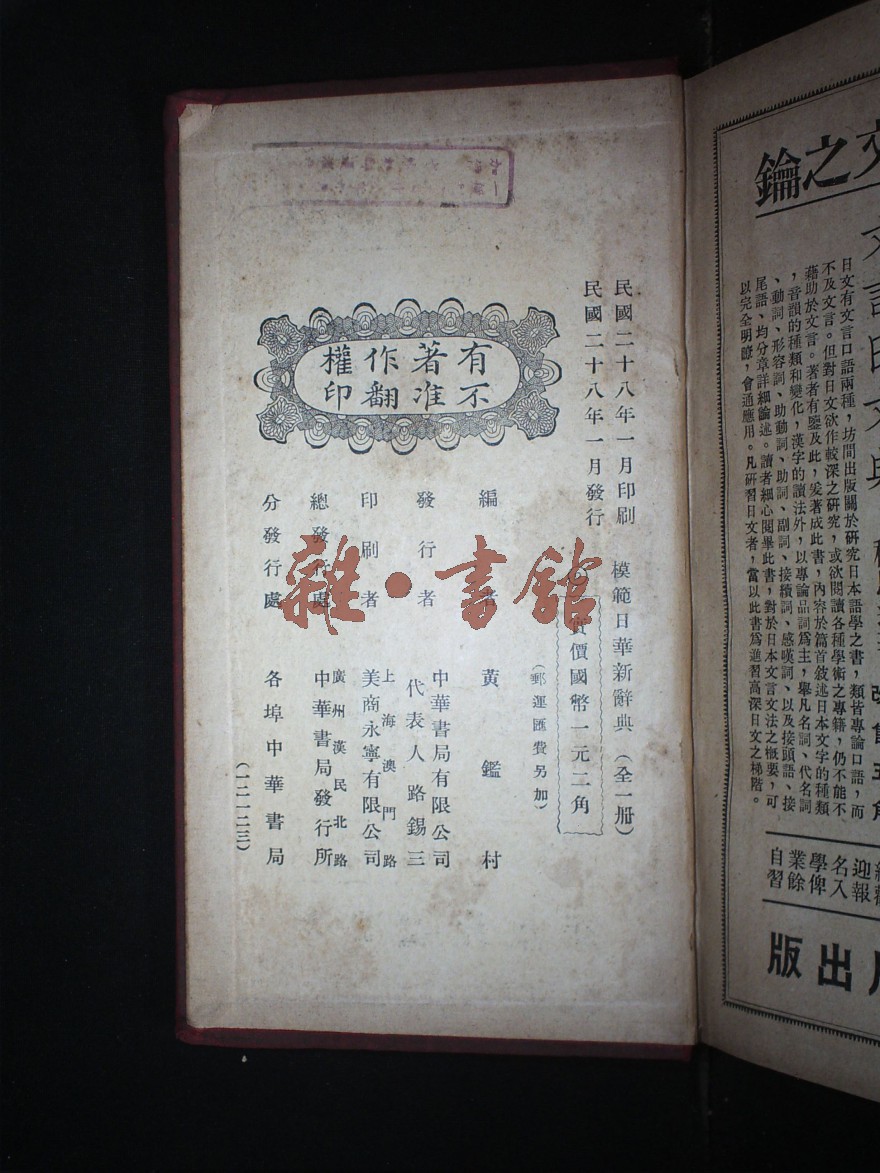 民國二十八年一月印刷
民國二十八年一月發行
模範日華新辭典（全一册）
實價國幣一元二角
（郵運匯費另加）
有著作權
不准翻印
編者 黃鑑村
發行者 中華書局有限公司
代表人路錫三
印刷者 上海澳門路
美商永寧有限公司
總發行處 廣州漢民北路
中華書局發行所
分發行處 各埠中華書局
（一二一二三）
雜·書館
文之鑰
日文有文言口語兩種，坊間出版關於研究日本語學之書，類皆專論口語，而
不及文言。但對日文欲作較深之研究，或欲閱讀各種學術之專籍，仍不能不
藉助於文言。著者有鑒及此，爰著成此書，內容於篇首敘述日本文字的種類
，音韻的種類和變化，漢字的讀法外，以專論品詞爲主，舉凡名詞、代名詞
、動詞、形容詞、助動詞、助詞、副詞、接續詞、感嘆詞、以及接頭語、接
尾語、均分章詳細論述。讀者細心閱畢此書，對於日本文言文法之概要，可
以完全明瞭，會通應用。凡研習日文者，當以此書爲進習高深日文之梯階。
迎報
名入
學俾
業餘
自習
出版